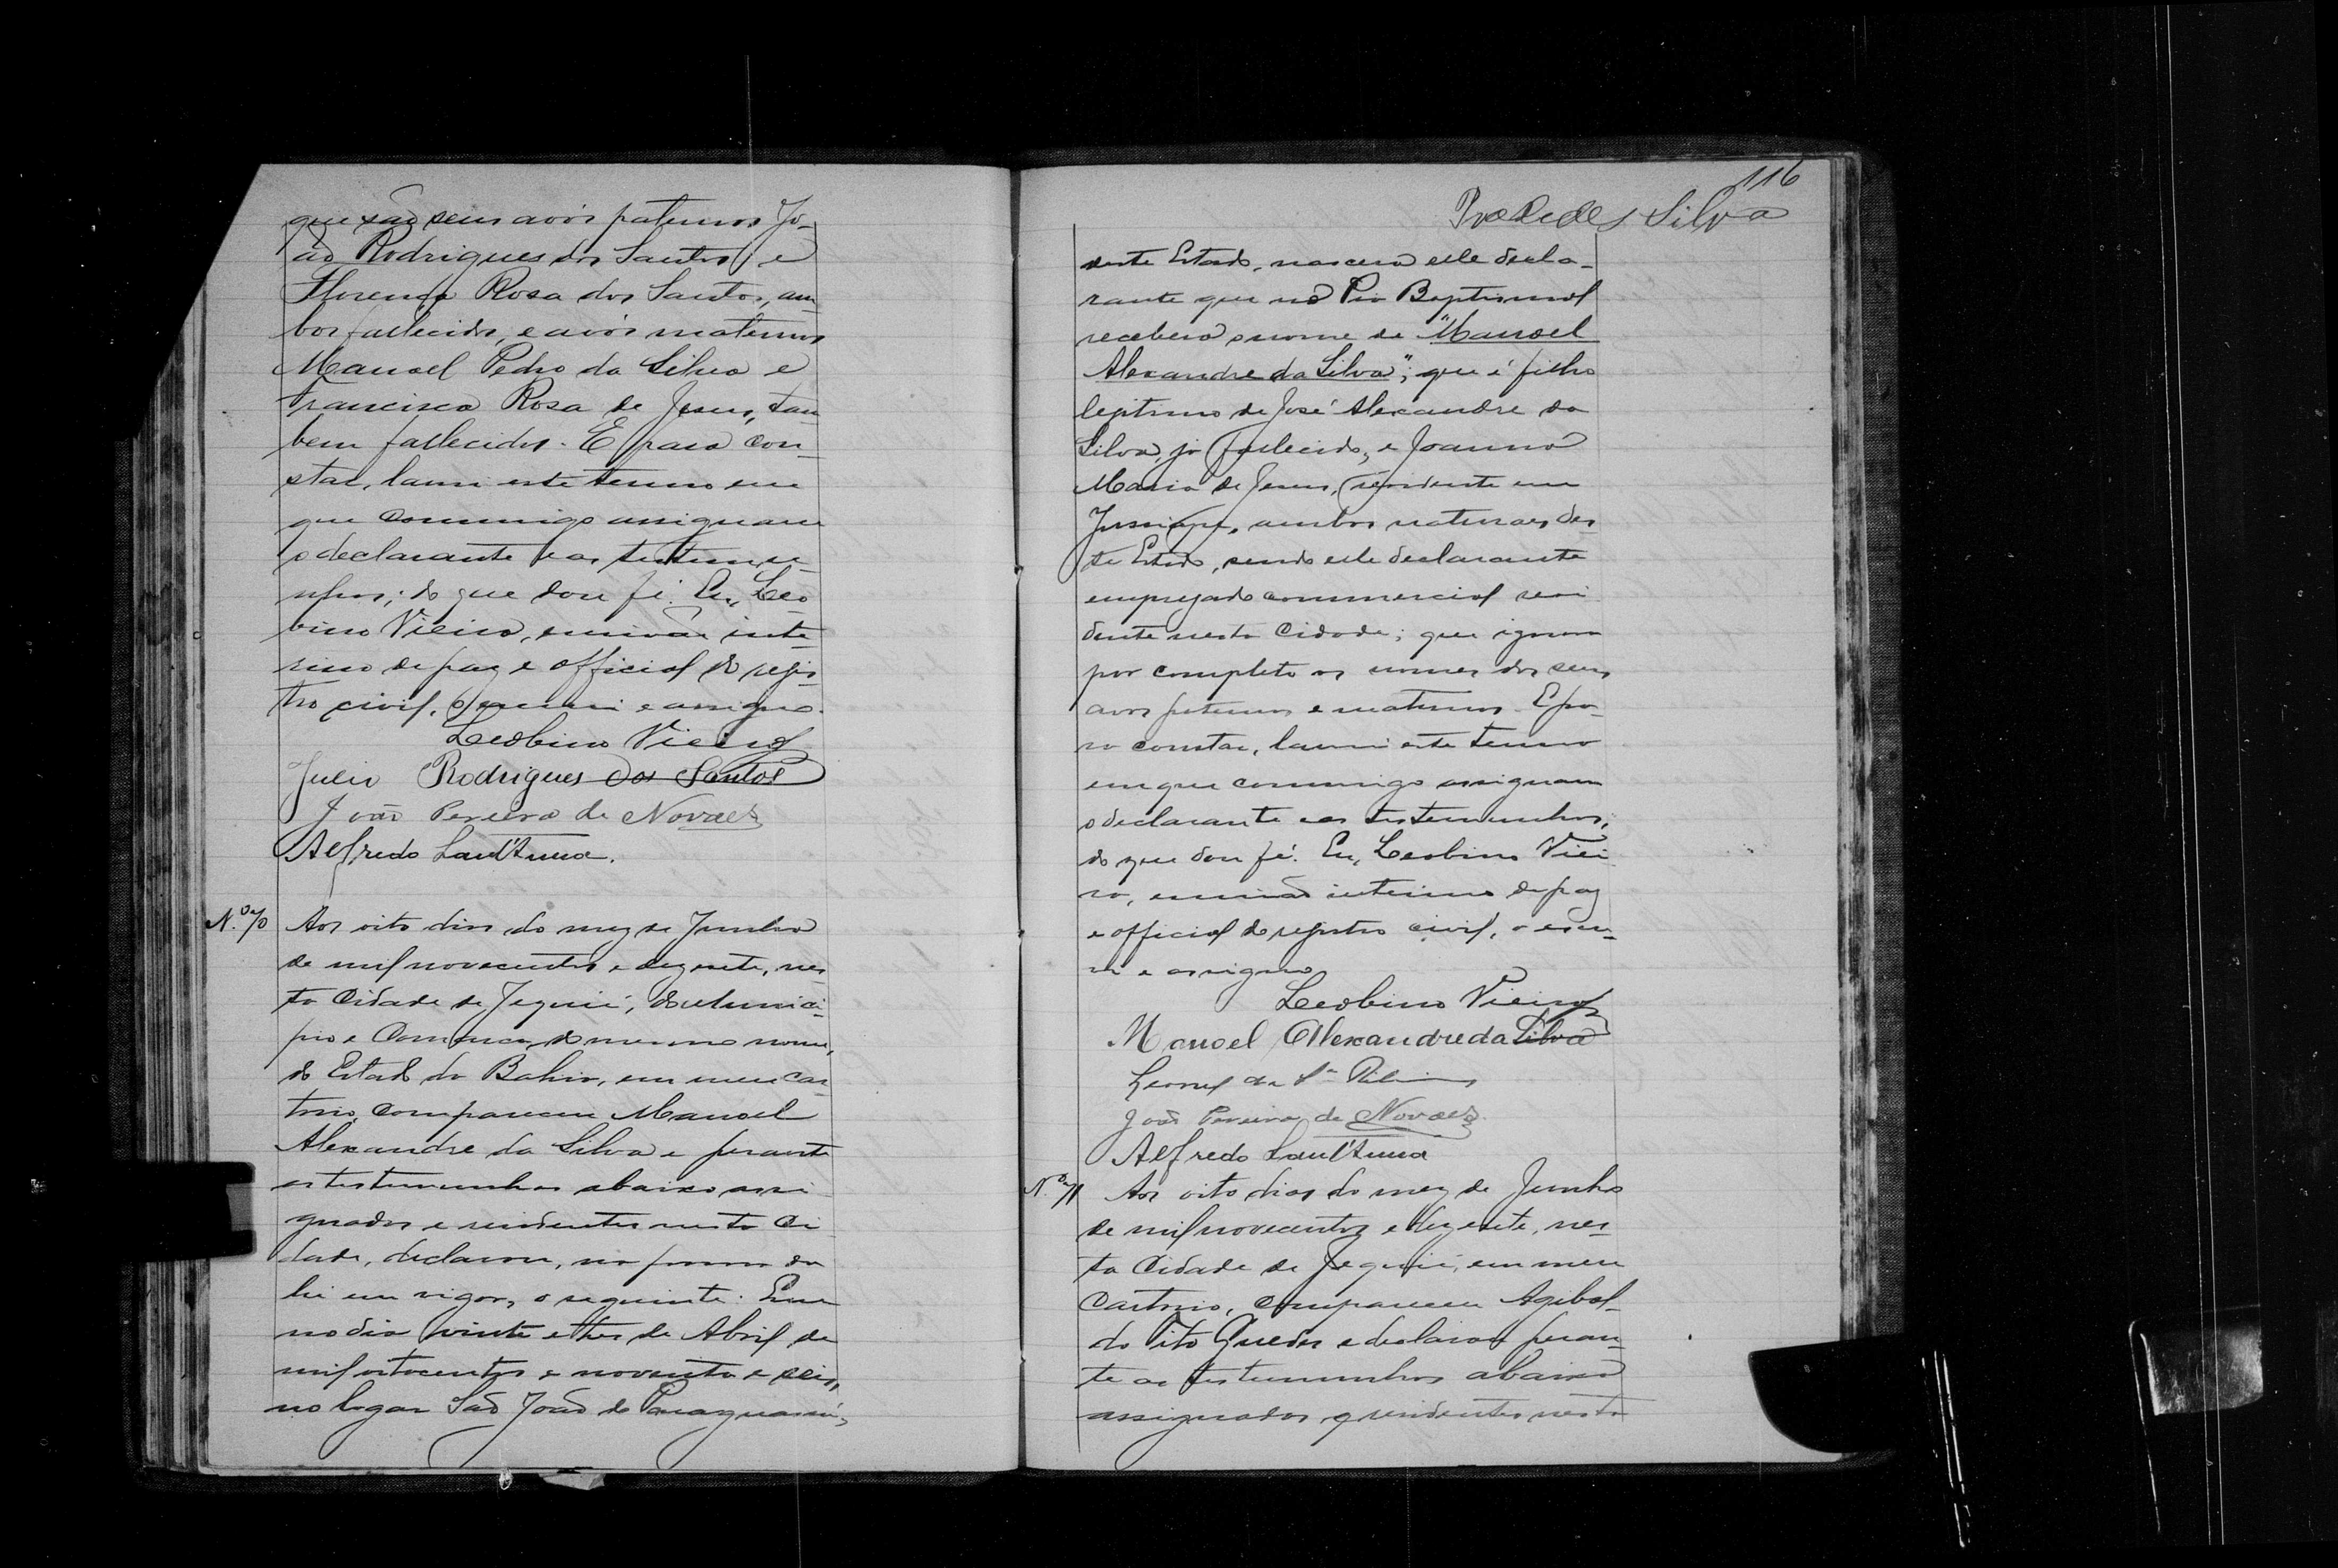 que são seus avós paternos Jo-
ão Rodrigues dos Santos e
Florença Rosa dos Santos, am
bos fallecidos, e avós maternos
Manoel Pedro da Silva e
Francisca Rosa de Jesus, tam
bem fallecidos. E para con-
star, lavrei este termo em
que commigo assignam
o declarante e as testemu-
nhas; do que dou fé. Eu, Leo
bino Vieira, escrivão inte
rino de paz e official do regis-
tro civil, o escrevi e assigno.
Leobino Vieira
Julio Rodrigues dos Santos
João Pereira de Novaes
Alfredo Sant'Anna.
N.º 70 Aos oito dias do mez de Junho
de mil novecentos e dezesete, nes
ta Cidade de Jequié, do Munici-
pio e Comarca do mesmo nome,
do Estado da Bahia, em meu Car
torio, compareceu Manoel
Alexandre da Silva e perante
as testemunhas abaixo assi
gnadas e residentes nesta Ci
dade, declarou, na forma da
lei em vigor, o seguinte: Que
no dia vinte e tres de Abril de
mil oitocentos e noventa e seis,
no logar São João do Paraguassú,
116
Silva
deste Estado, nascera elle decla-
rante que na Pia Baptismal
recebera o nome de "Manoel
Alexandre da Silva"; que é filho
legitimo de José Alexandre da
Silva, já fallecido, e Joanna
Maria de Jesus, residente em
Jussiape, ambos naturaes des
te Estado, sendo elle declarante
empregado commercial resi
dente nesta Cidade; que ignora
por completo os nomes dos seus
avós paternos e maternos. E pa-
ra constar, lavrei este termo
em que commigo assignam
o declarante e as testemunhas;
do que dou fé. Eu, Leobino Viei
ra, escrivão interino de paz
e official do registro civil, o escre-
vi e assigno
Leobino Vieira
Manoel Alexandre da Silva
João Pereira de Novaes
Alfredo Sant'Anna
N.º 71 Aos oito dias do mez de Junho
de mil novecentos e dezesete, nes-
ta Cidade de Jequié, em meu
Cartorio, compareceu Agibal-
do Tito Guedes e declarou peran-
te as testemunhas abaixo
assignadas e residentes nesta